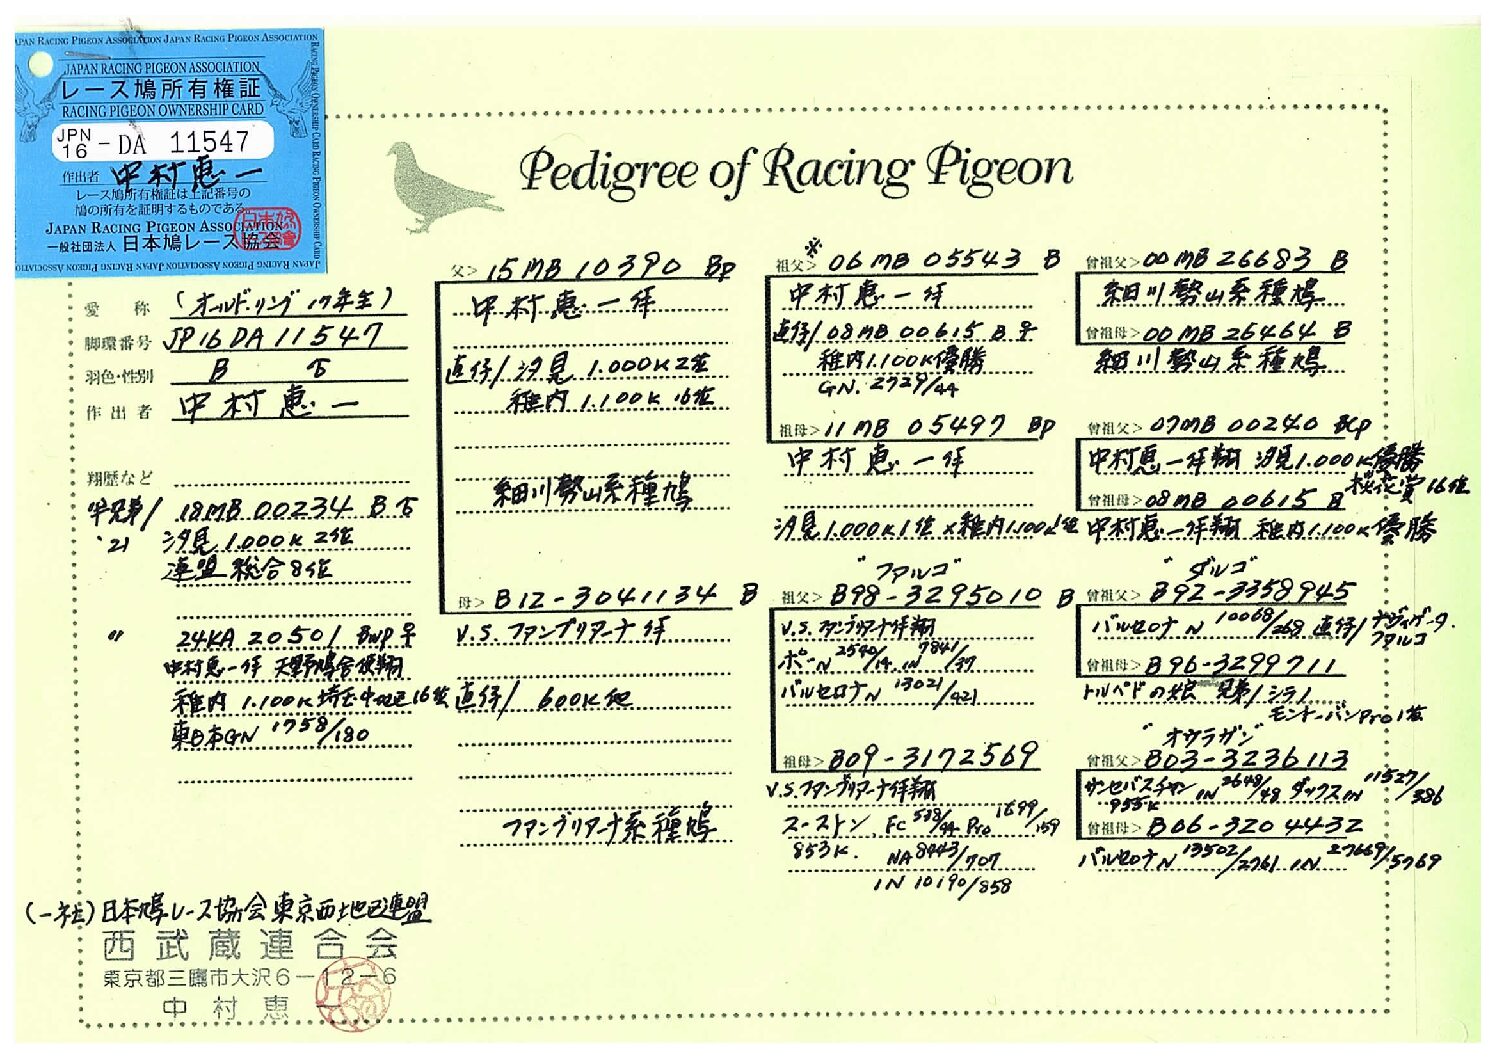 JAPAN RACING PIGEON ASSOCIATION JAPAN RACING PIGEON ASSOCIATION
JAPAN RACING PIGEON ASSOCIATION
レース鳩所有権証
RACING PIGEON OWNERSHIP CARD
JPN 16 - DA 11547
作出者 中村恵一
レース鳩所有権証は上記番号の
鳩の所有を証明するものである
JAPAN RACING PIGEON ASSOCIATION
一般社団法人 日本鳩レース協会
Pedigree of Racing Pigeon
愛称 (オールドリング 17年生)
脚環番号 JP16DA11547
羽色・性別 B ♂
作出者 中村恵一
翔歴など
半兄弟/ 18MB00234 B ♂
'21 汐見1.000K2位
連盟総合8位
〃 24KA20501 BWP ♀
中村恵一作 天野鳩舎使翔
稚内1.100K埼玉中地区16位
東日本GN 1758/180
父> 15MB10390 BP
中村恵一作
直仔/汐見1.000K2位
稚内1.100K16位
細川勢山系種鳩
母> B12-3041134 B
V.S.ファンブリアーナ作
直仔/ 600K他
ファンブリアーナ系種鳩
※
祖父> 06MB05543 B
中村恵一作
直仔/08MB00615 B ♀
稚内1.100K優勝
GN. 2729/44
祖母> 11MB05497 BP
中村恵一作
汐見1.000K1位×稚内1.100K1位
"ファルコ"
祖父> B98-3295010 B
V.S.ファンブリアーナ作翔
ポーN 2540/14 IN 7841/37
バルセロナN 13021/421
祖母> B09-3172569
V.S.ファンブリアーナ作翔
スーストン FC 538/44 Pro 1699/159
853K. NA 8443/707
IN 10190/858
曾祖父> 00MB26683 B
細川勢山系種鳩
曾祖母> 00MB26464 B
細川勢山系種鳩
曾祖父> 07MB00240 BCP
中村恵一作翔 汐見1.000K優勝
桜花賞16位
曾祖母> 08MB00615 B
中村恵一作翔 稚内1.100K優勝
"ダルコ"
曾祖父> B92-3358945
バルセロナN 10068/268 直仔/ナヴィガータ.
ファルコ
曾祖母> B96-3299711
トルペドの娘 兄弟/シラノ
モントーバンPro1位
"オウラガン"
曾祖父> B03-3236113
サンセバスチャン IN 2648/48 ダックスIN 11527/386
955K
曾祖母> B06-3204432
バルセロナN 13502/2761 IN 27669/5769
(一社)日本鳩レース協会東京西地区連盟
西武蔵連合会
東京都三鷹市大沢6-12-6
中村恵一